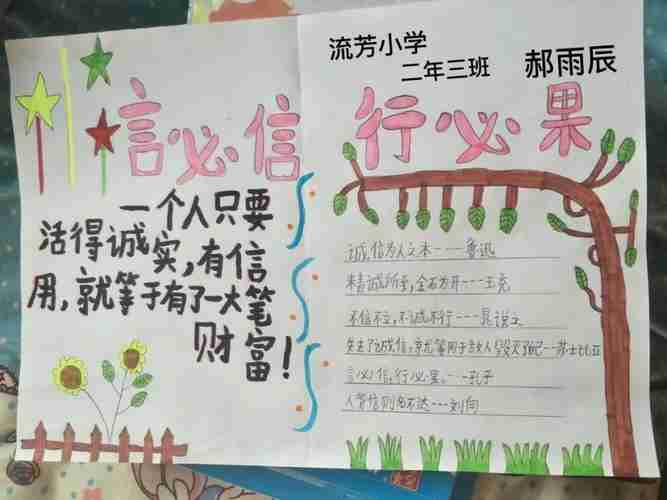 流芳小学
二年三班 郝雨辰
言必信 行必果
一个人只要
活得诚实,有信
用,就等于有了一大笔
财富!
诚信为人之本----鲁迅
精诚所至,金石为开---王充
不信不立,不诚不行---晁说之
失去了诚信,就等同于敌人毁灭了自己--莎士比亚
言必信,行必果。---孔子
人背信则名不达---刘向